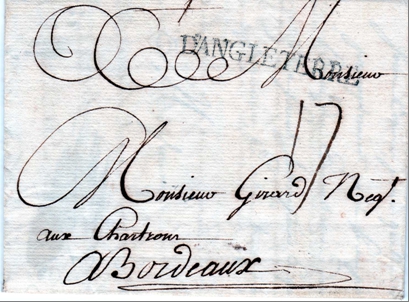 A Monsieur
D'ANGLETERRE
17
Monsieur Girard Negt.
aux Chartrons
A Bordeaux